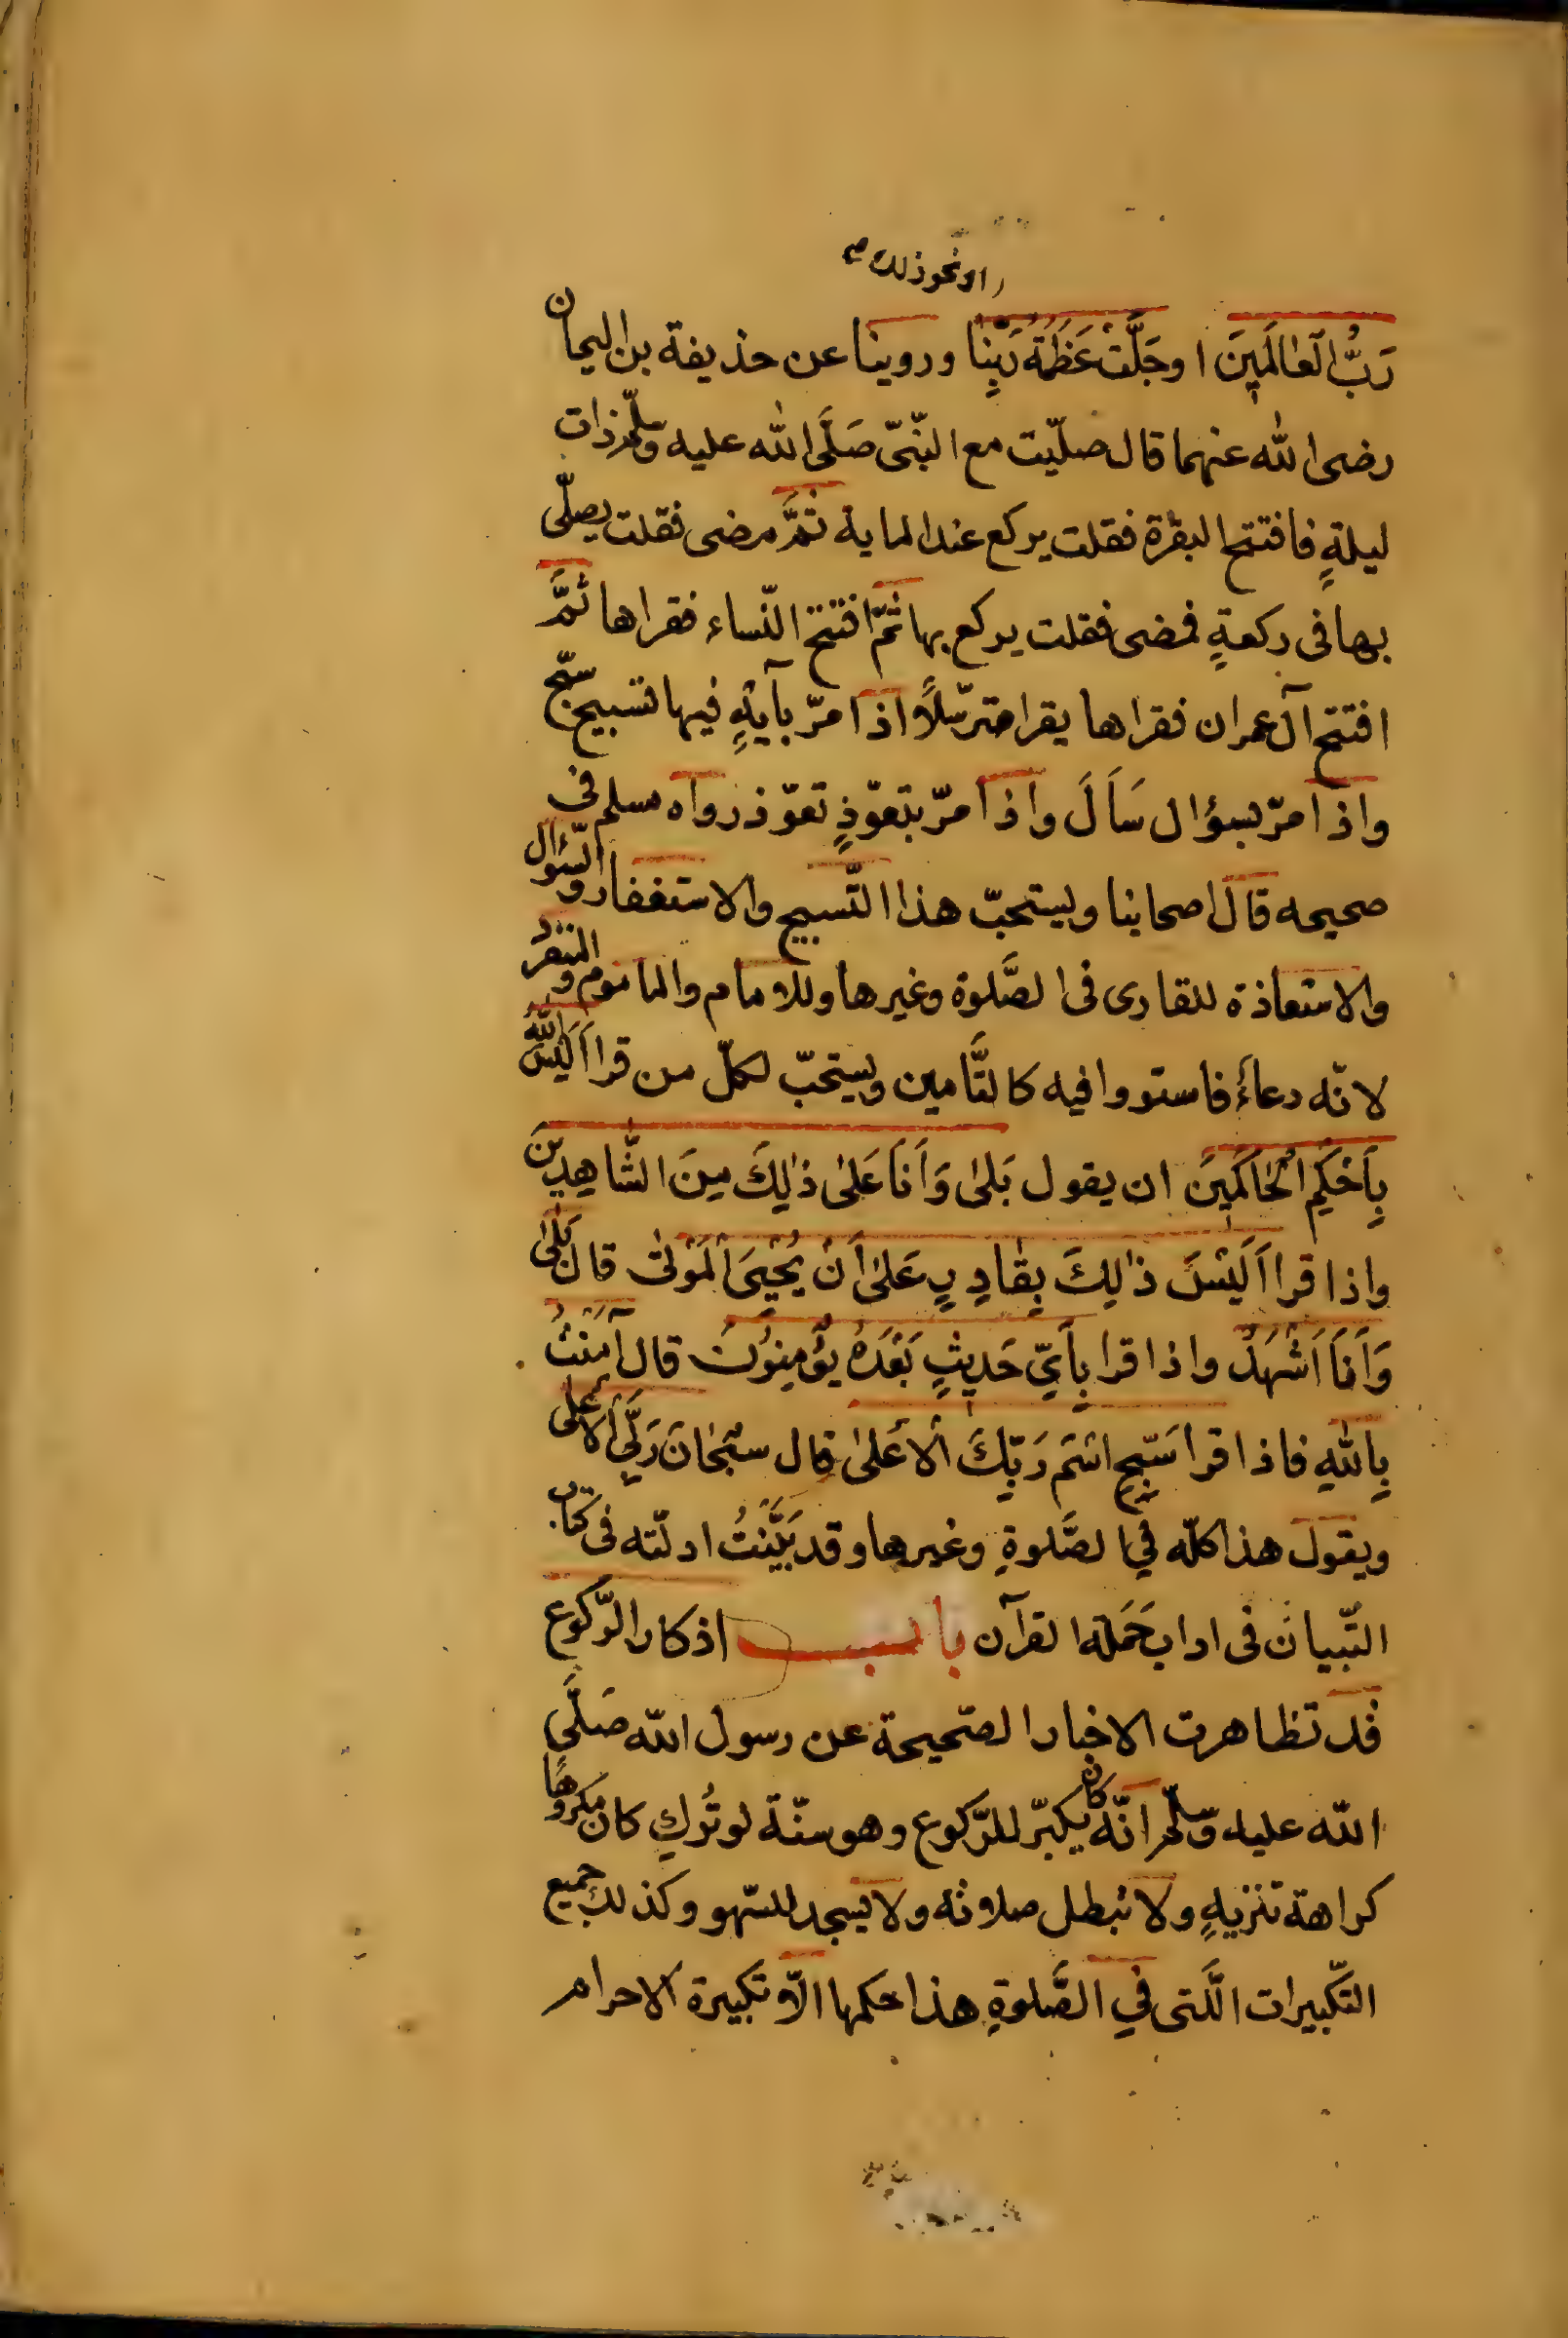 او نحو ذلك صح
رَبُّ الْعَالَمِينَ او جَلَّتْ عَظَمَةُ رَبِّنَا وروينا عن حذيفة بن اليمان
رضى الله عنهما قال صلّيت مع النّبىّ صَلَّى الله عليه وسلّم ذات
ليلةٍ فافتتح البقرة فقلت يركع عند الماية ثمَّ مضى فقلت يصلّى
بها فى ركعةٍ فمضى فقلت يركع بها ثمّ افتتح النّساء فقراها ثمَّ
افتتح آل عمران فقراها يقرا مترسّلاً اذا مرّ بآيةٍ فيها تسبيح سبّح
واذا مرّ بسؤال سَاَلَ واذا مرّ بتعوّذٍ تعوّذ رواه مسلم فى
صحيحه قال اصحابنا ويستحبّ هذا التَّسبيح والاستغفار والسّؤال
والاستعاذة للقارى فى الصَّلوة وغيرها وللامام والماموم والمنفرد
لانّه دعاءٌ فاستووا فيه كالتَّامين ويستحبّ لكلّ من قرا اَلَيْسَ اللهُ
بِاَحْكَمِ الْحَاكِمِينَ ان يقول بَلىٰ وَاَنَا عَلىٰ ذٰلِكَ مِنَ الشَّاهِدِينَ
واذا قرا اَلَيْسَ ذٰلِكَ بِقَادِرٍ عَلىٰ اَنْ يُحْيِىَ الْمَوْتىٰ قال بَلىٰ
وَاَنَا اَشْهَدُ واذا قرا بِاَىِّ حَدِيثٍ بَعْدَهُ يُؤْمِنُونَ قال آمَنْتُ
بِاللهِ فاذا قرا سَبِّحِ اسْمَ رَبِّكَ الْاَعْلىٰ قال سُبْحَانَ رَبِّىَ الْاَعْلىٰ
ويقول هذا كلّه فِى الصَّلوةِ وغيرها وقد بَيَّنْتُ ادلّته فى كتاب
التّبيان فى اداب حَمَلَة القرآن باب اذكار الرّكوع
قد تظاهرت الاخبار الصّحيحة عن رسول الله صَلَّى
الله عليه وسلّم انّه كان يكبّر للرّكوع وهو سنّة لو تُرِك كان مكروهًا
كراهة تنزيهٍ ولا تبطل صلاته ولا يسجد للسّهو وكذلك جميع
التّكبيرات الَّتى فِى الصَّلوةِ هذا حكمها الاّ تكبيرة الاحرام